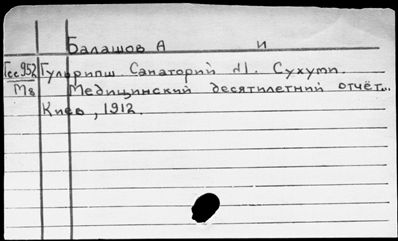 Балашов А И
Гсс952 Гульрипш Санаторий №1. Сухуми.
М8 Медицинский десятилетний отчёт...
Киев, 1912.